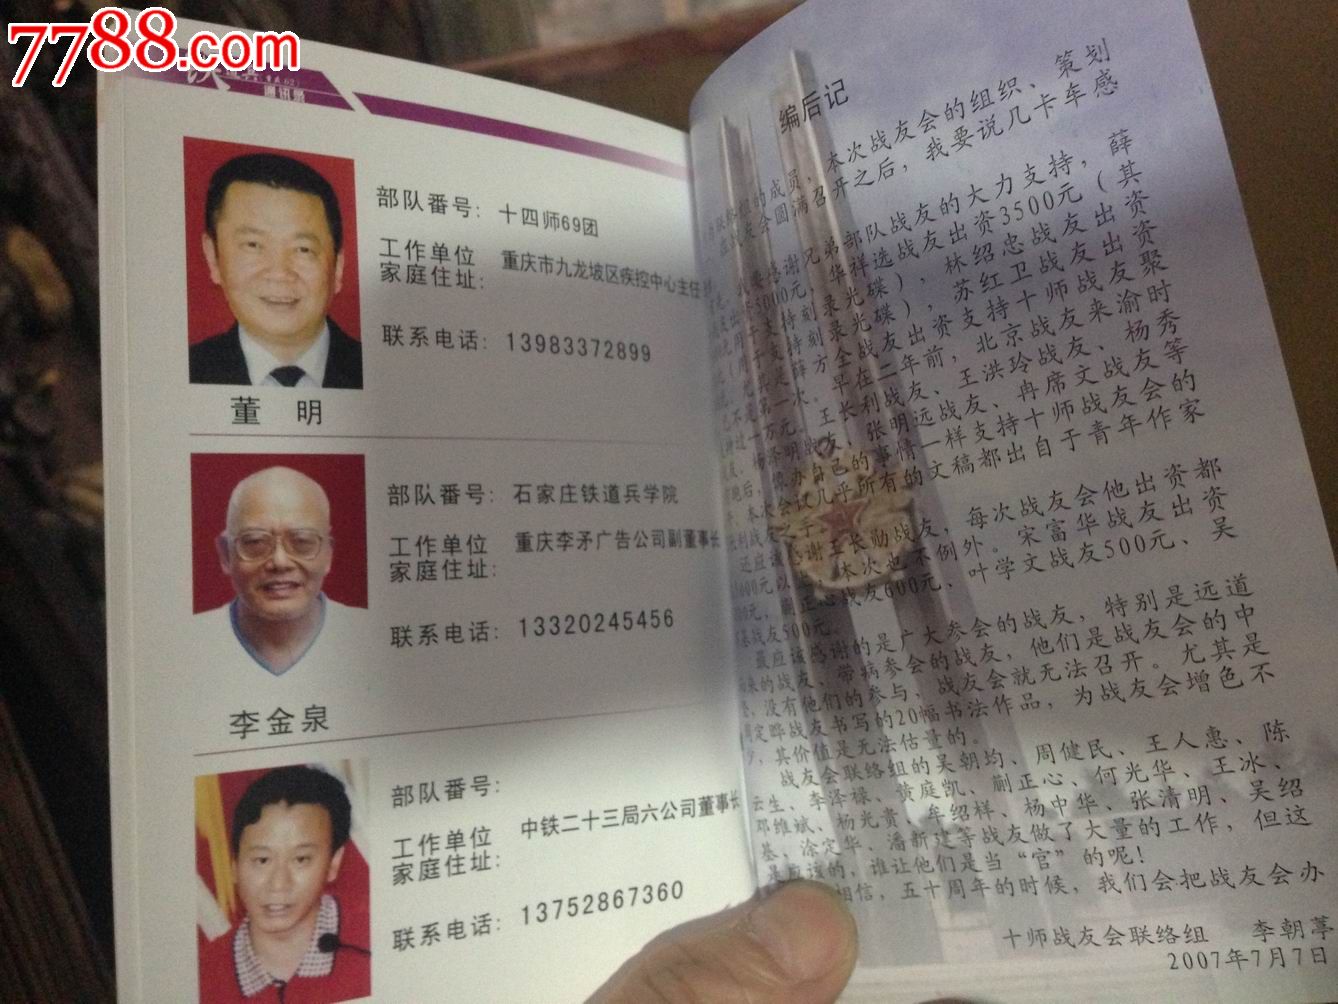 7788.com
通讯录
部队番号: 十四师69团
工作单位
家庭住址:
重庆市九龙坡区疾控中心主任
联系电话: 13983372899
董 明
部队番号: 石家庄铁道兵学院
工作单位
家庭住址:
重庆李矛广告公司副董事长
联系电话: 13320245456
李金泉
部队番号:
工作单位
家庭住址:
中铁二十三局六公司董事长
联系电话: 13752867360
编后记
的成员,本次战友会的组织、策划
圆满召开之后,我要说几卡车感
谢兄弟部队战友的大力支持,薛
华祥选战友出资3500元(其
录光碟),林绍忠战友出资
刻录光碟),苏红卫战友出资
方全战友出资支持十师战友聚
早在二年前,北京战友来渝时
王长利战友、王洪玲战友、杨秀
张明远战友、冉席文战友等
办自己的事情一样支持十师战友会的
本次会议几乎所有的文稿都出自于青年作家
之手
还应该感谢王长勋战友,每次战友会他出资都
以上,本次也不例外。宋富华战友出资
正心战友600元、叶学文战友500元、吴
战友500元。
最应该感谢的是广大参会的战友,特别是远道
来的战友、带病参会的战友,他们是战友会的中
没有他们的参与,战友会就无法召开。尤其是
周定晔战友书写的20幅书法作品,为战友会增色不
少,其价值是无法估量的。
战友会联络组的吴朝均、周健民、王人惠、陈
云生、李泽禄、黄庭凯、蒯正心、何光华、王冰、
邓维斌、杨光贵、牟绍样、杨中华、张清明、吴绍
基、涂定华、潘新建等战友做了大量的工作,但这
是应该的,谁让他们是当“官”的呢!
相信,五十周年的时候,我们会把战友会办
十师战友会联络组 李朝葶
2007年7月7日